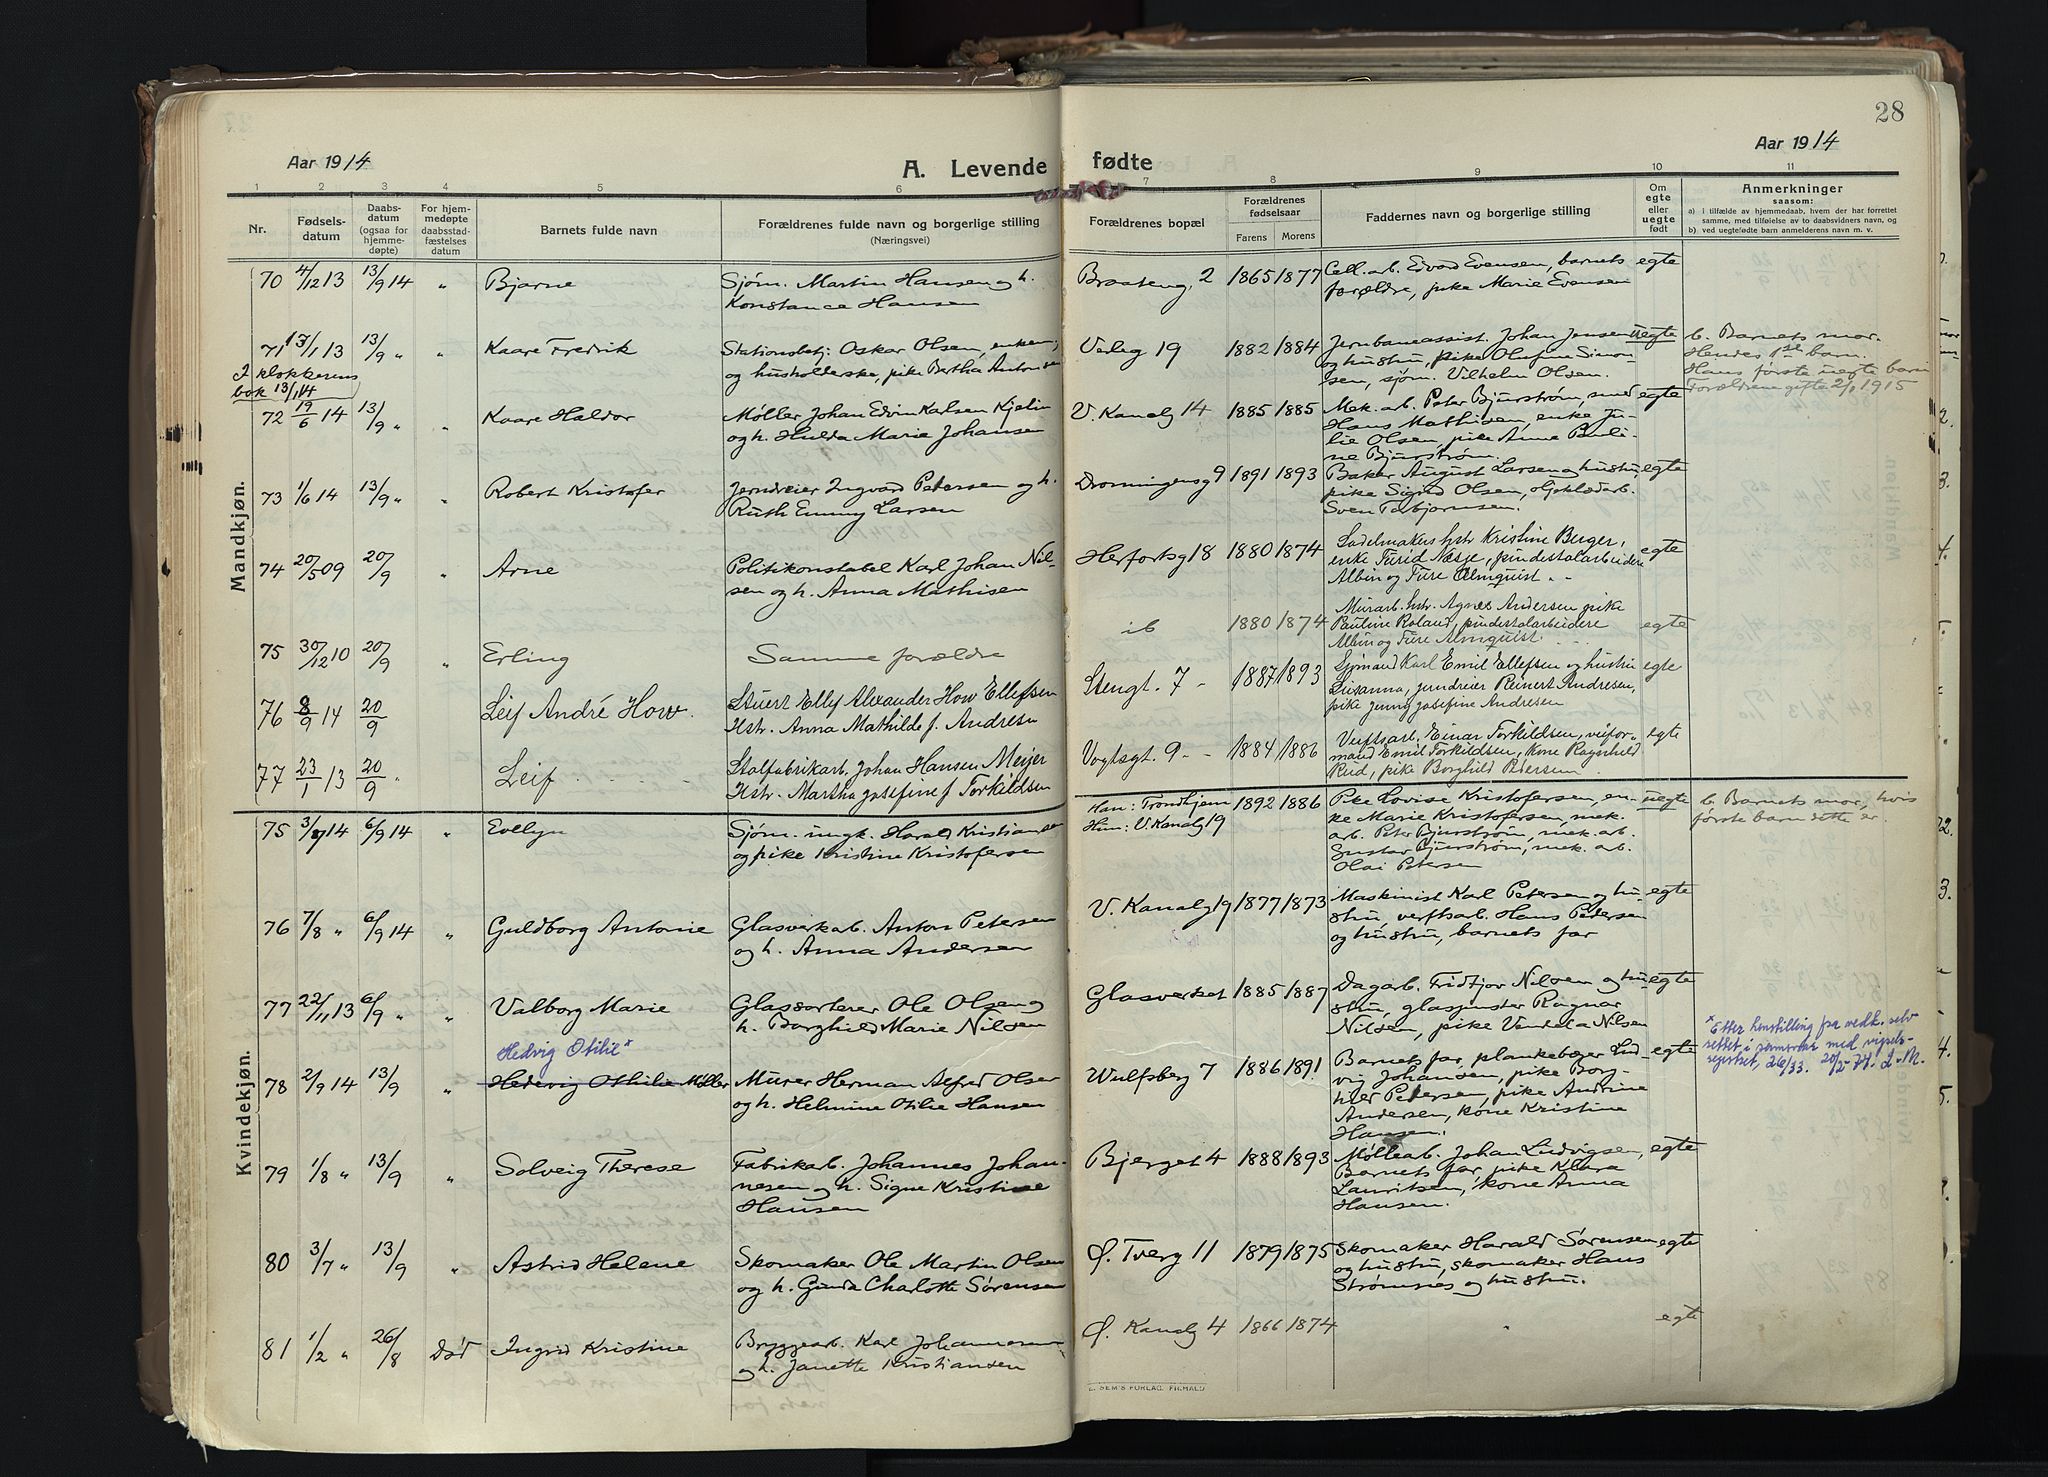 28
Aar 1914
A. Levende fødte
Aar 1914
1 2 3 4 5 6 7 8 9 10 11
Nr.
Fødsels-
datum
Daabs-
datum
(ogsaa for
hjemme-
døpte)
For hjem-
medøpte
daabsstad-
fæstelses
datum
Barnets fulde navn
Forældrenes fulde navn og borgerlige stilling
(Næringsvei)
Forældrenes bopæl
Forældrenes
fødselsaar
Farens
Morens
Faddernes navn og borgerlige stilling
Om
egte
eller
uegte
født
Anmerkninger
saasom:
a) i tilfælde av hjemmedaab, hvem der har forrettet
samme, med tilføielse av to daabsvidners navn, og
b) ved uegtefødte barn anmelderens navn m. v.
Mandkjøn.
70 4/12 13 13/9 14 " Bjarne
Sjøm. Martin Hansen og h.
Konstance Hansen
2 1865 1877
Cell. arb. Edvard Evensen, barnets
forældre, pike Marie Evensen
egte
71 13/9 " " Kaare Fredrik
Stationsbetj. Oskar Olsen, enkem,
og husholderske, pike Bertha Antonsen
19 1882 1884
Jernbaneassist. Johan Jensen
og hustru, pike Olufine Simon-
sen, sjøm. Vilhelm Olsen.
uegte
b. Barnets mor.
Hendes 1ste barn.
Hans første uegte barn
Forældrene gifte 1915
I klokkerens
bok 13/1 14
72 19/6 14 13/9 " " Kaare Haldor
Møller Johan Edvin Karlsen Kjelin
og h. Hulda Marie Johansen
V. Kanalg 14 1885 1885
Mek. arb. Peter Bjurstrøm, smed
Hans Mathisen, enke Ju-
lie Olsen, pike Anna Pauli-
ne Bjurstrøm.
egte
73 1/6 14 13/9 " " Robert Kristofer
Jerndreier Ingvard Petersen og h.
Ruth Emmy Larsen
Dronningensg 9 1891 1893
Baker August Larsen og hustru,
pike Sigrid Olsen, oljeklædarb.
Sven Torbjørnsen.
egte
74 20/5 09 20/9 " Arne
Politikonstabel Karl Johan Nil-
sen og h. Anna Mathisen
Herfortsg 18 1880 1874
Sadelmakers hstr Kristine Berger,
enke Turid Næsje, pindestolarbeidere
Albin og Ture Almquist. "
egte
75 30/12 10 20/9 " Erling
Samme forældre
ib 1880 1874
Murarb. hstr. Agnes Andersen pike
Pauline Roland, pindestolarbeidere
Albin og Ture Almquist.
egte
76 8/9 14 20/9 Leif André How.
Stuert Ellef Alexander How Ellefsen
Hstr. Anna Mathilde f. Andresen
Stengt. 7 - 1887 1893
Sjømand Karl Emil Ellefsen og hustru
Susanna, jerndreier Reinert Andresen,
pike Jenny Josefine Andresen
egte
77 23/1 13 20/9 " Leif
Stolfabrikarb. Johan Hansen Meijer
Hstr. Martha Josefine f Torkildsen
Vogtsgt. 9. - 1884 1886
Verftsarb. Einar Torkildsen, veifor-
mand Emil Torkildsen, kone Ragnhild
Rud, pike Borghild Pedersen
egte
Kvindekjøn.
75 14 6/9 14 " Evelyn
Sjøm. ungk. Harald Kristiansen
og pike Kristine Kristofersen
Han: Trondhjem
Hun: V. Kanalg 19
1892 1886
Pike Lovise Kristofersen, en-
ke Marie Kristofersen, mek.
arb. Peter Bjurstrøm, mek. arb.
Gustav Bjurstrøm, mek. arb.
Olai Petersen
uegte
b. Barnets mor, hvis
første barn dette er.
76 7/8 " 6/9 14 " Guldborg Antonie
Glasverkarb. Anton Petersen
og h. Anna Andersen
V. Kanalg 19 1877 1873
Maskinist Karl Petersen og hu-
stru, verftsarb. Hans Petersen
og hustru, barnets far
egte
77 22/11 13 6/9 " " Valborg Marie
Glassorterer Ole Olsen og
h. Borghild Marie Nilsen
Glasverket 1885 1887
Dagarb. Fridtjov Nilsen og hu-
stru, glaspuster Ragnar
Nilsen, pike Vendela Nilsen
egte
Hedvig Otilie*
78 2/9 14 13/9 " Hedevig Othilie Møller
Murer Herman Alfred Olsen
og h. Helmine Otilie Hansen
Wulfsberg 7 1886 1891
Barnets far, plankebærer Lud-
vig Johansen, pike Borg-
hild Petersen, pike Andrine
Andersen, kone Kristine
Hansen.
egte
* Etter henstilling fra vedk. selv
rettet i samsvar med vigsels-
registret, 26/33. 20/2-74. L. M.
79 1/8 " 13/9 " Solveig Therese
Fabrikarb. Johannes Johan-
nesen og h. Signe Kristine
Hansen
Bjerget 4 1888 1893
Møllearb. Johan Ludvigsen,
Barnets far, pike Klara
Lauritsen, kone Anna
Hansen.
egte
80 3/7 " 13/9 " Astrid Helene
Skomaker Ole Martin Olsen
og h. Gunda Charlotte Sørensen
Ø. Tverg 11 1879 1875
Skomaker Harald Sørensen
og hustru, skomaker Hans
Strømsnes og hustru.
egte
81 1/2 " 26/8 Død Ingrid Kristine
Bryggearb. Karl Johannesen
og h. Janette Kristiansen
Ø. Kanalg 4 1866 1874 "
egte
E. SEM'S FORLAG, FR.HALD